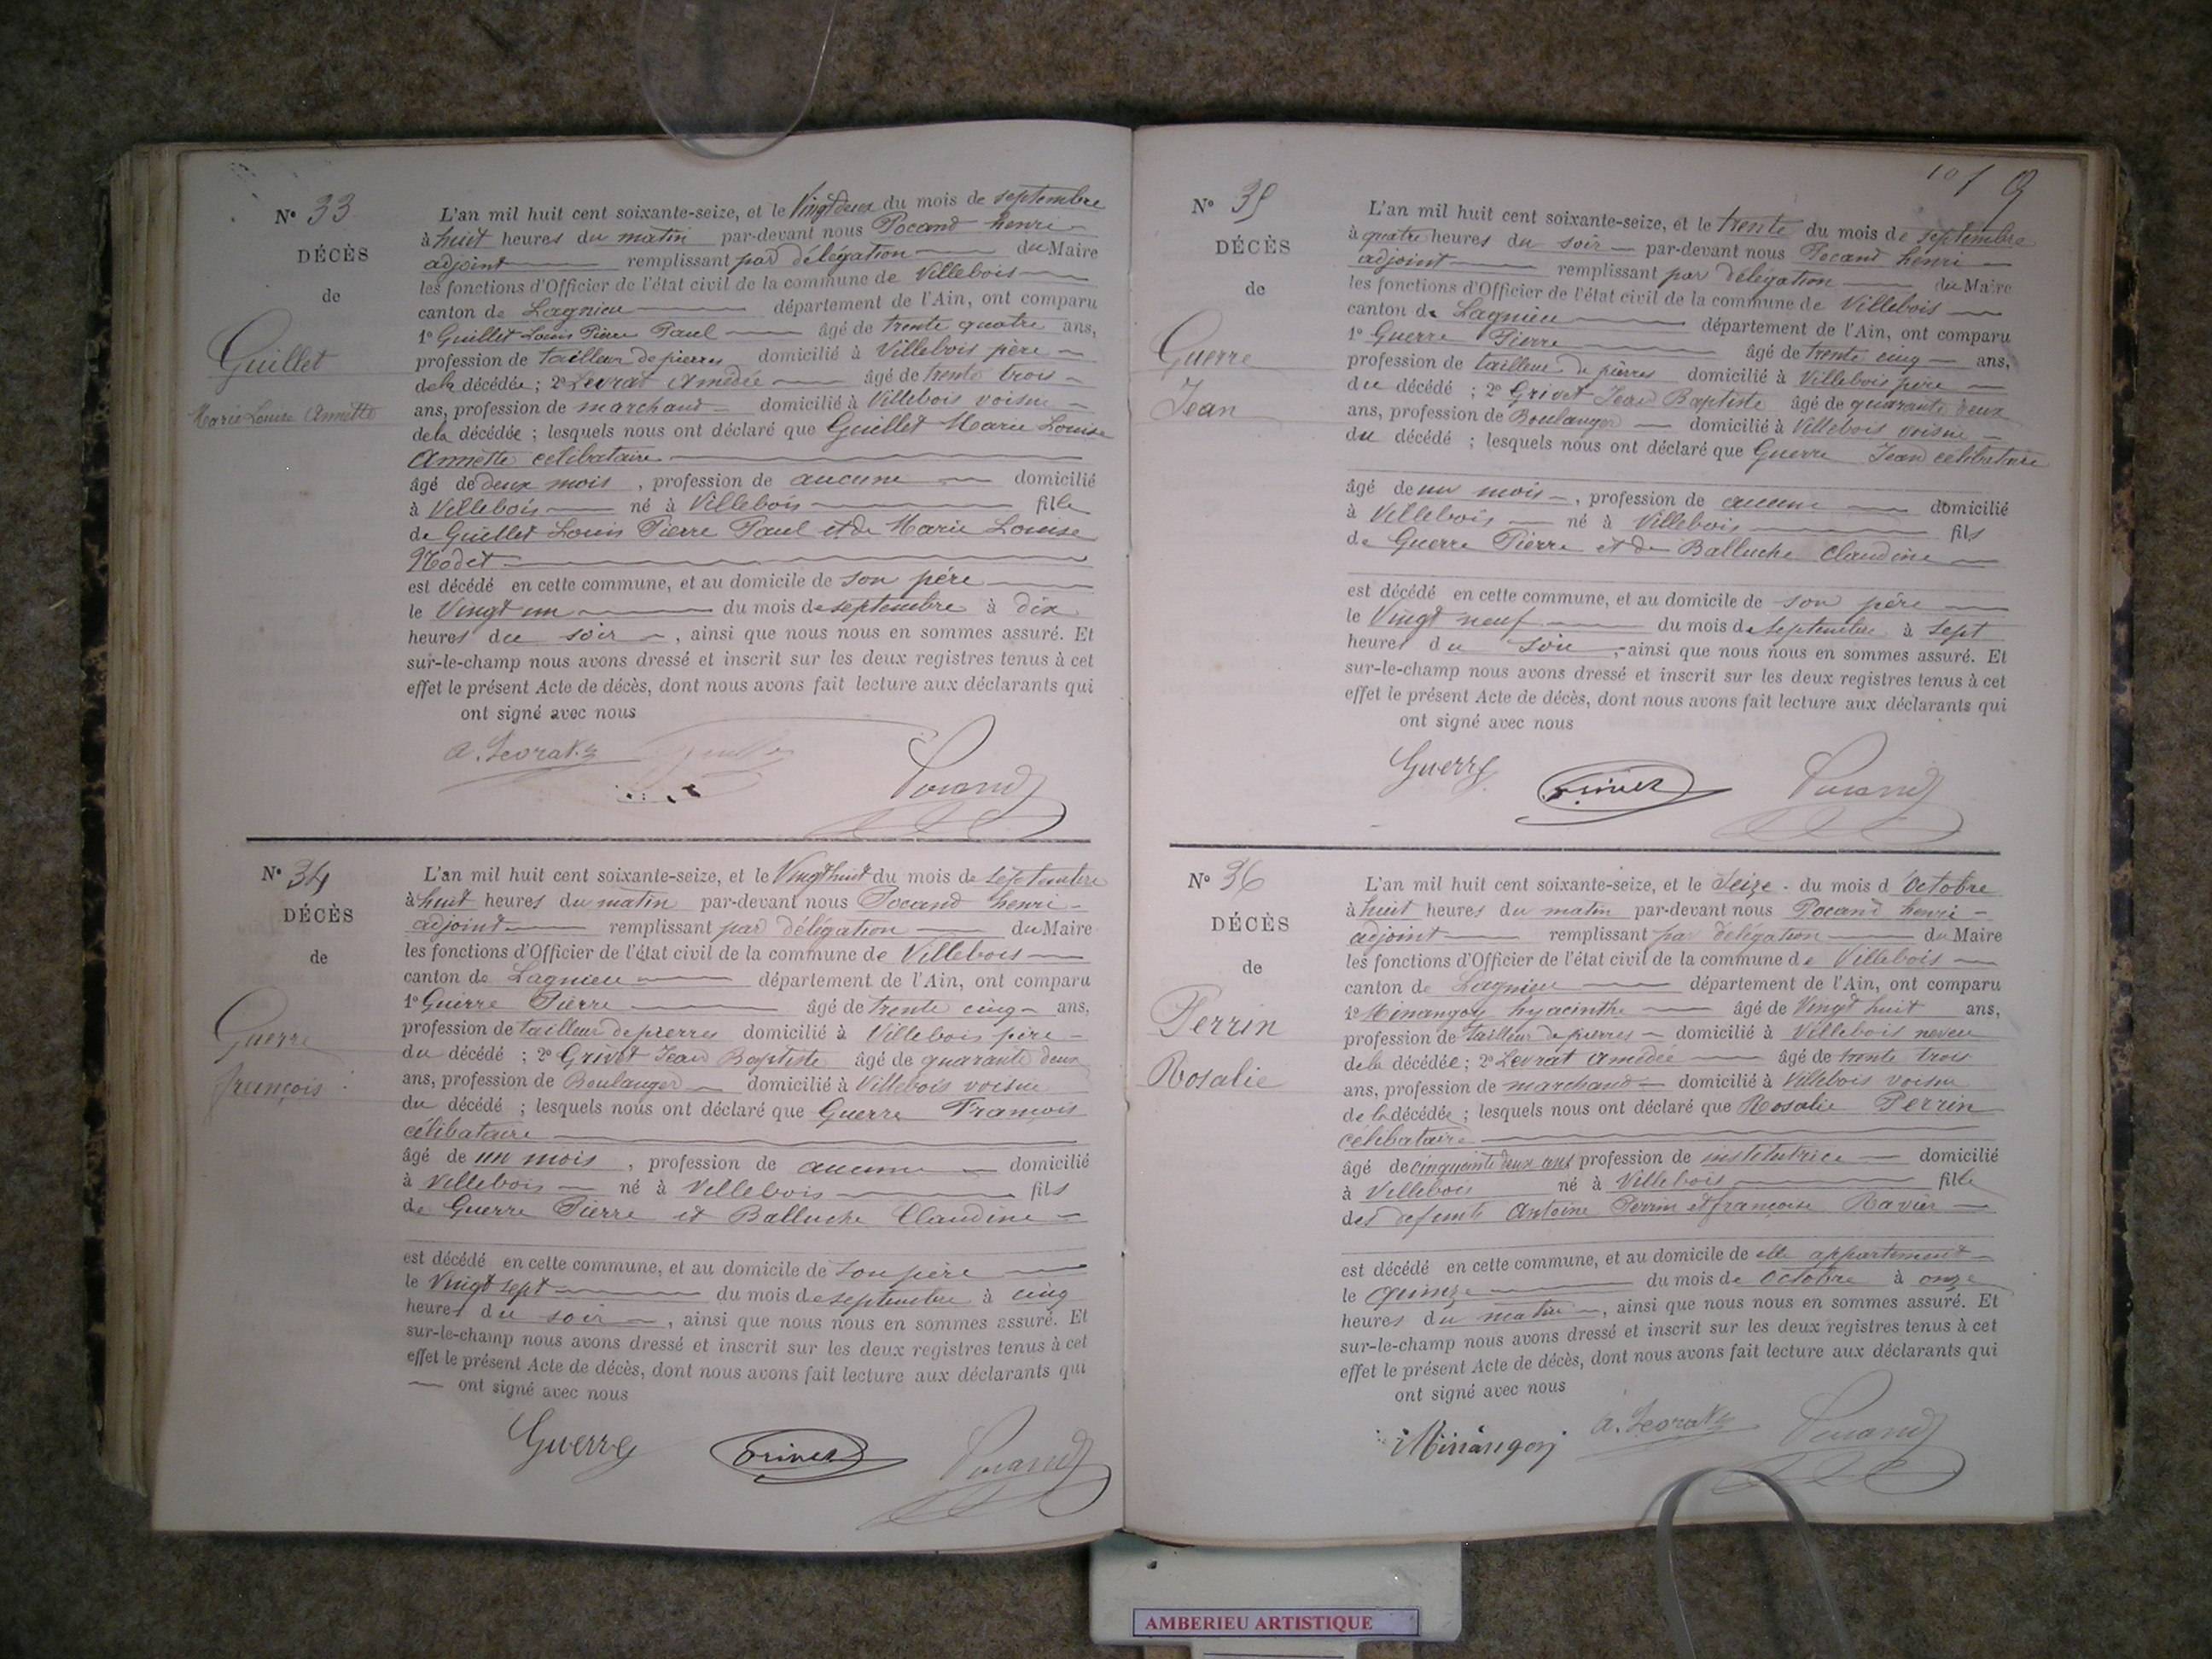 N° 33
DÉCÈS
de
Guillet
Marie Louise Annette
L'an mil huit cent soixante-seize, et le Vingt deux du mois de septembre
à huit heures du matin par-devant nous Pocand henri
adjoint remplissant par délégation du Maire
les fonctions d'Officier de l'état civil de la commune de Villebois
canton de Lagnieu département de l'Ain, ont comparu
1° Guillet Louis Pierre Paul âgé de trente quatre ans,
profession de tailleur de pierres domicilié à Villebois père
dela décédée ; 2° Levrat Amédée âgé de trente trois
ans, profession de marchand domicilié à Villebois voisin
dela décédée ; lesquels nous ont déclaré que Guillet Marie Louise
Annette celibataire
âgé de deux mois , profession de aucune domicilié
à Villebois né à Villebois fille
de Guillet Louis Pierre Paul et de Marie Louise
Nodet
est décédé en cette commune, et au domicile de son père
le Vingt un du mois de septembre à dix
heures du soir , ainsi que nous nous en sommes assuré. Et
sur-le-champ nous avons dressé et inscrit sur les deux registres tenus à cet
effet le présent Acte de décès, dont nous avons fait lecture aux déclarants qui
ont signé avec nous
a. Levrat Pocand
N° 34
DÉCÈS
de
Guerre
françois
L'an mil huit cent soixante-seize, et le Vingt huit du mois de septembre
à huit heures du matin par-devant nous Pocand henri
adjoint remplissant par délégation du Maire
les fonctions d'Officier de l'état civil de la commune de Villebois
canton de Lagnieu département de l'Ain, ont comparu
1° Guerre Pierre âgé de trente cinq ans,
profession de tailleur de pierres domicilié à Villebois père
du décédé ; 2° Grivet Jean Baptiste âgé de quarante deux
ans, profession de Boulanger domicilié à Villebois voisin
du décédé ; lesquels nous ont déclaré que Guerre François
célibataire
âgé de un mois , profession de aucune domicilié
à Villebois né à Villebois fils
de Guerre Pierre et Balluche Claudine
est décédé en cette commune, et au domicile de son père
le Vingt sept du mois de septembre à cinq
heures du soir , ainsi que nous nous en sommes assuré. Et
sur-le-champ nous avons dressé et inscrit sur les deux registres tenus à cet
effet le présent Acte de décès, dont nous avons fait lecture aux déclarants qui
ont signé avec nous
Guerre Grivet Pocand
9
N° 35
DÉCÈS
de
Guerre
Jean
L'an mil huit cent soixante-seize, et le trente du mois de septembre
à quatre heures du soir par-devant nous Pocand henri
adjoint remplissant par délégation du Maire
les fonctions d'Officier de l'état civil de la commune de Villebois
canton de Lagnieu département de l'Ain, ont comparu
1° Guerre Pierre âgé de trente cinq ans,
profession de tailleur de pierres domicilié à Villebois père
du décédé ; 2° Grivet Jean Baptiste âgé de quarante deux
ans, profession de Boulanger domicilié à Villebois voisin
du décédé ; lesquels nous ont déclaré que Guerre Jean celibataire
âgé de un mois , profession de aucune domicilié
à Villebois né à Villebois fils
de Guerre Pierre et de Balluche Claudine
est décédé en cette commune, et au domicile de son père
le Vingt neuf du mois de septembre à sept
heures du soir , ainsi que nous nous en sommes assuré. Et
sur-le-champ nous avons dressé et inscrit sur les deux registres tenus à cet
effet le présent Acte de décès, dont nous avons fait lecture aux déclarants qui
ont signé avec nous
Guerre Grivet Pocand
N° 36
DÉCÈS
de
Perrin
Rosalie
L'an mil huit cent soixante-seize, et le Seize du mois d'Octobre
à huit heures du matin par-devant nous Pocand henri
adjoint remplissant par délégation du Maire
les fonctions d'Officier de l'état civil de la commune de Villebois
canton de Lagnieu département de l'Ain, ont comparu
1° Minangoy hyacinthe âgé de Vingt huit ans,
profession de tailleur de pierres domicilié à Villebois neveu
dela décédée ; 2° Levrat Amédée âgé de trente trois
ans, profession de marchand domicilié à Villebois voisin
de la décédée ; lesquels nous ont déclaré que Rosalie Perrin
célibataire
âgé de cinquante deux ans profession de institutrice domicilié
à Villebois né à Villebois fille
des defunts Antoine Perrin et françoise Ravier
est décédé en cette commune, et au domicile de elle appartement
le quinze du mois de Octobre à onze
heures du matin , ainsi que nous nous en sommes assuré. Et
sur-le-champ nous avons dressé et inscrit sur les deux registres tenus à cet
effet le présent Acte de décès, dont nous avons fait lecture aux déclarants qui
ont signé avec nous
Minangoy a. Levrat Pocand
AMBERIEU ARTISTIQUE